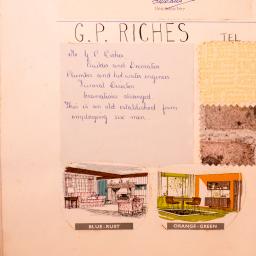 G.P. RICHES TEL.
Mr G P Riches
Builder and Decorator
Plumber and hot water engineer
Funeral Director
Cremations arranged
This is an old established firm
employing six men.
BLUE-RUST
ORANGE-GREEN